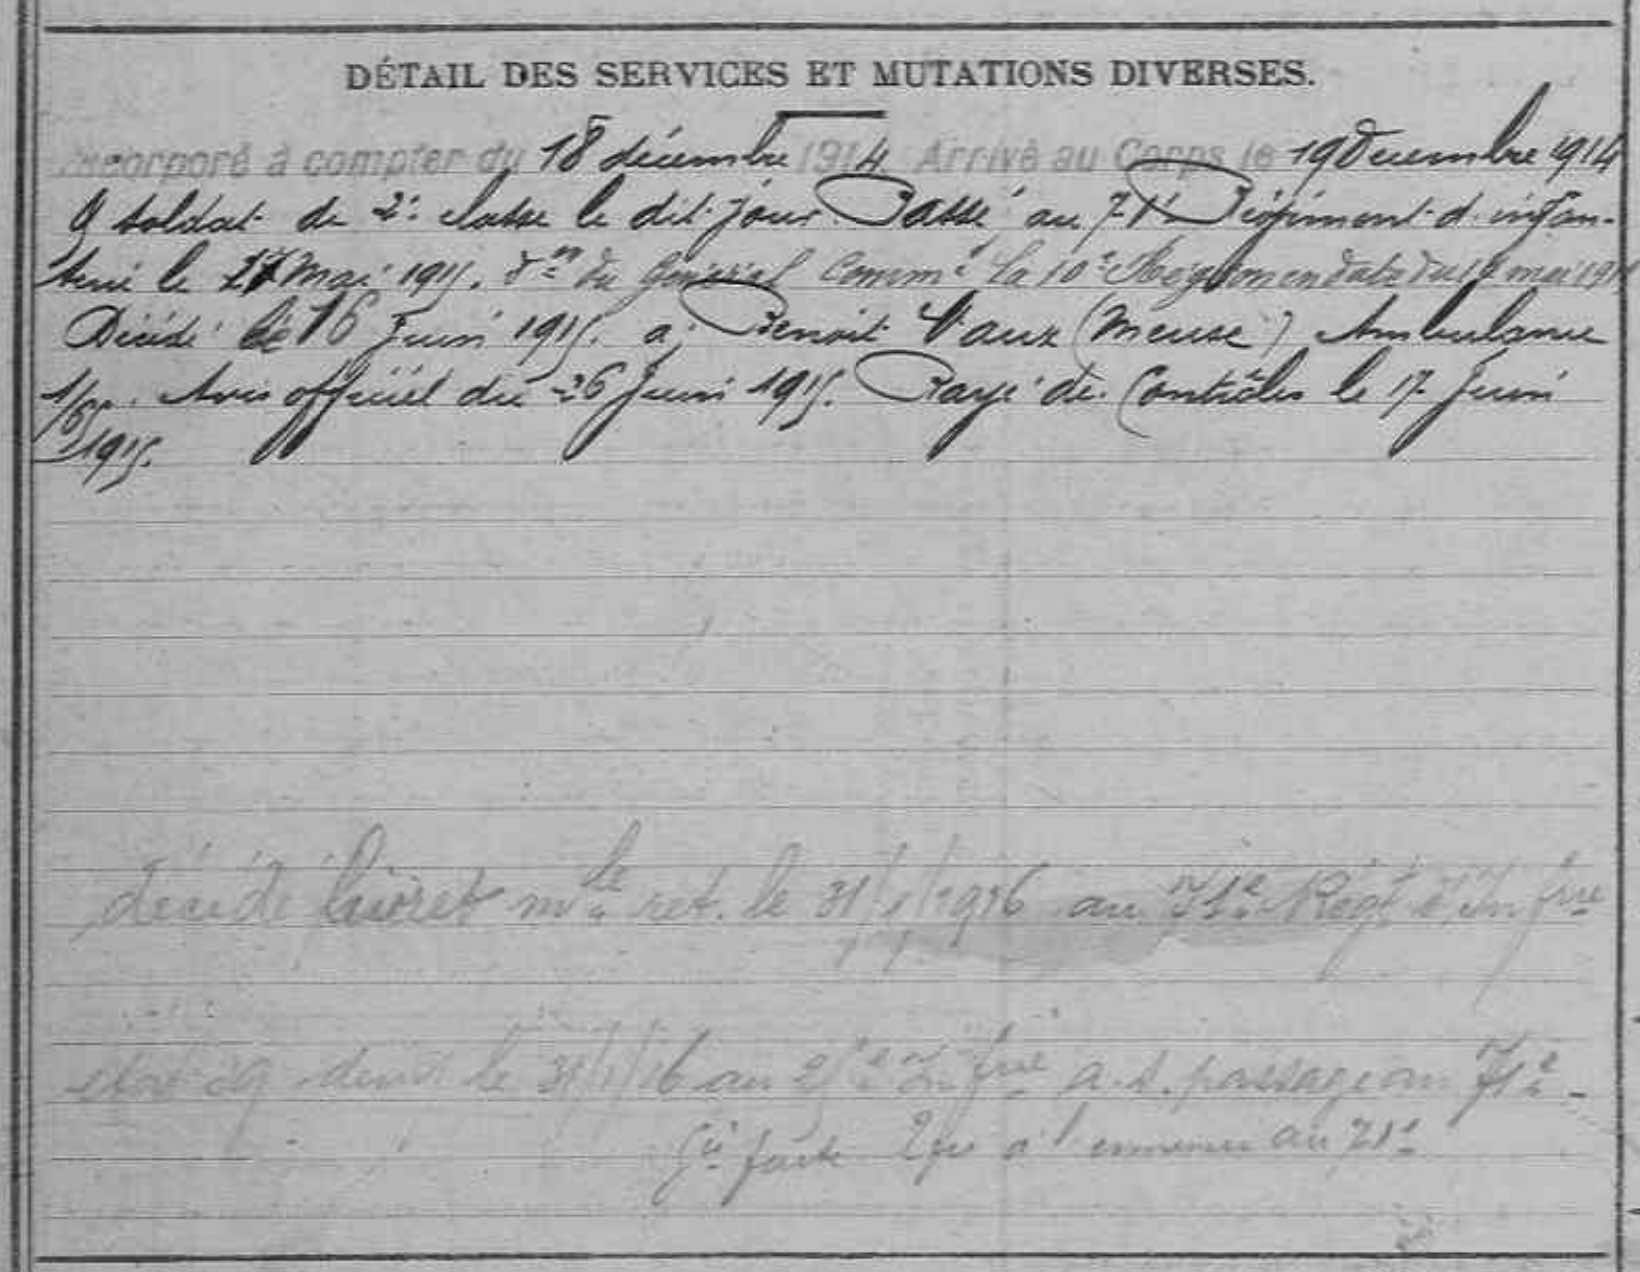 DÉTAIL DES SERVICES ET MUTATIONS DIVERSES.
Incorporé à compter du 18 décembre 1914. Arrivé au Corps le 19 Décembre 1914
soldat de 2e classe le dit jour. Passé au 71e Régiment d'infan-
terie le 27 Mai 1915. don du Général Commt la 10e Région en date du mai 191
Décédé le 16 Juin 1915. à Benoit Vaux (Meuse) Ambulance
1/65. Avis officiel du 26 Juin 1915. Rayé des Contrôles le 17 Juin
1915.
décédé livret mle ret. le 31/1/1916 au 71e Régt d'Infrie
le 31/1/16 au Infrie a.s. passage au 71e -
au 71e